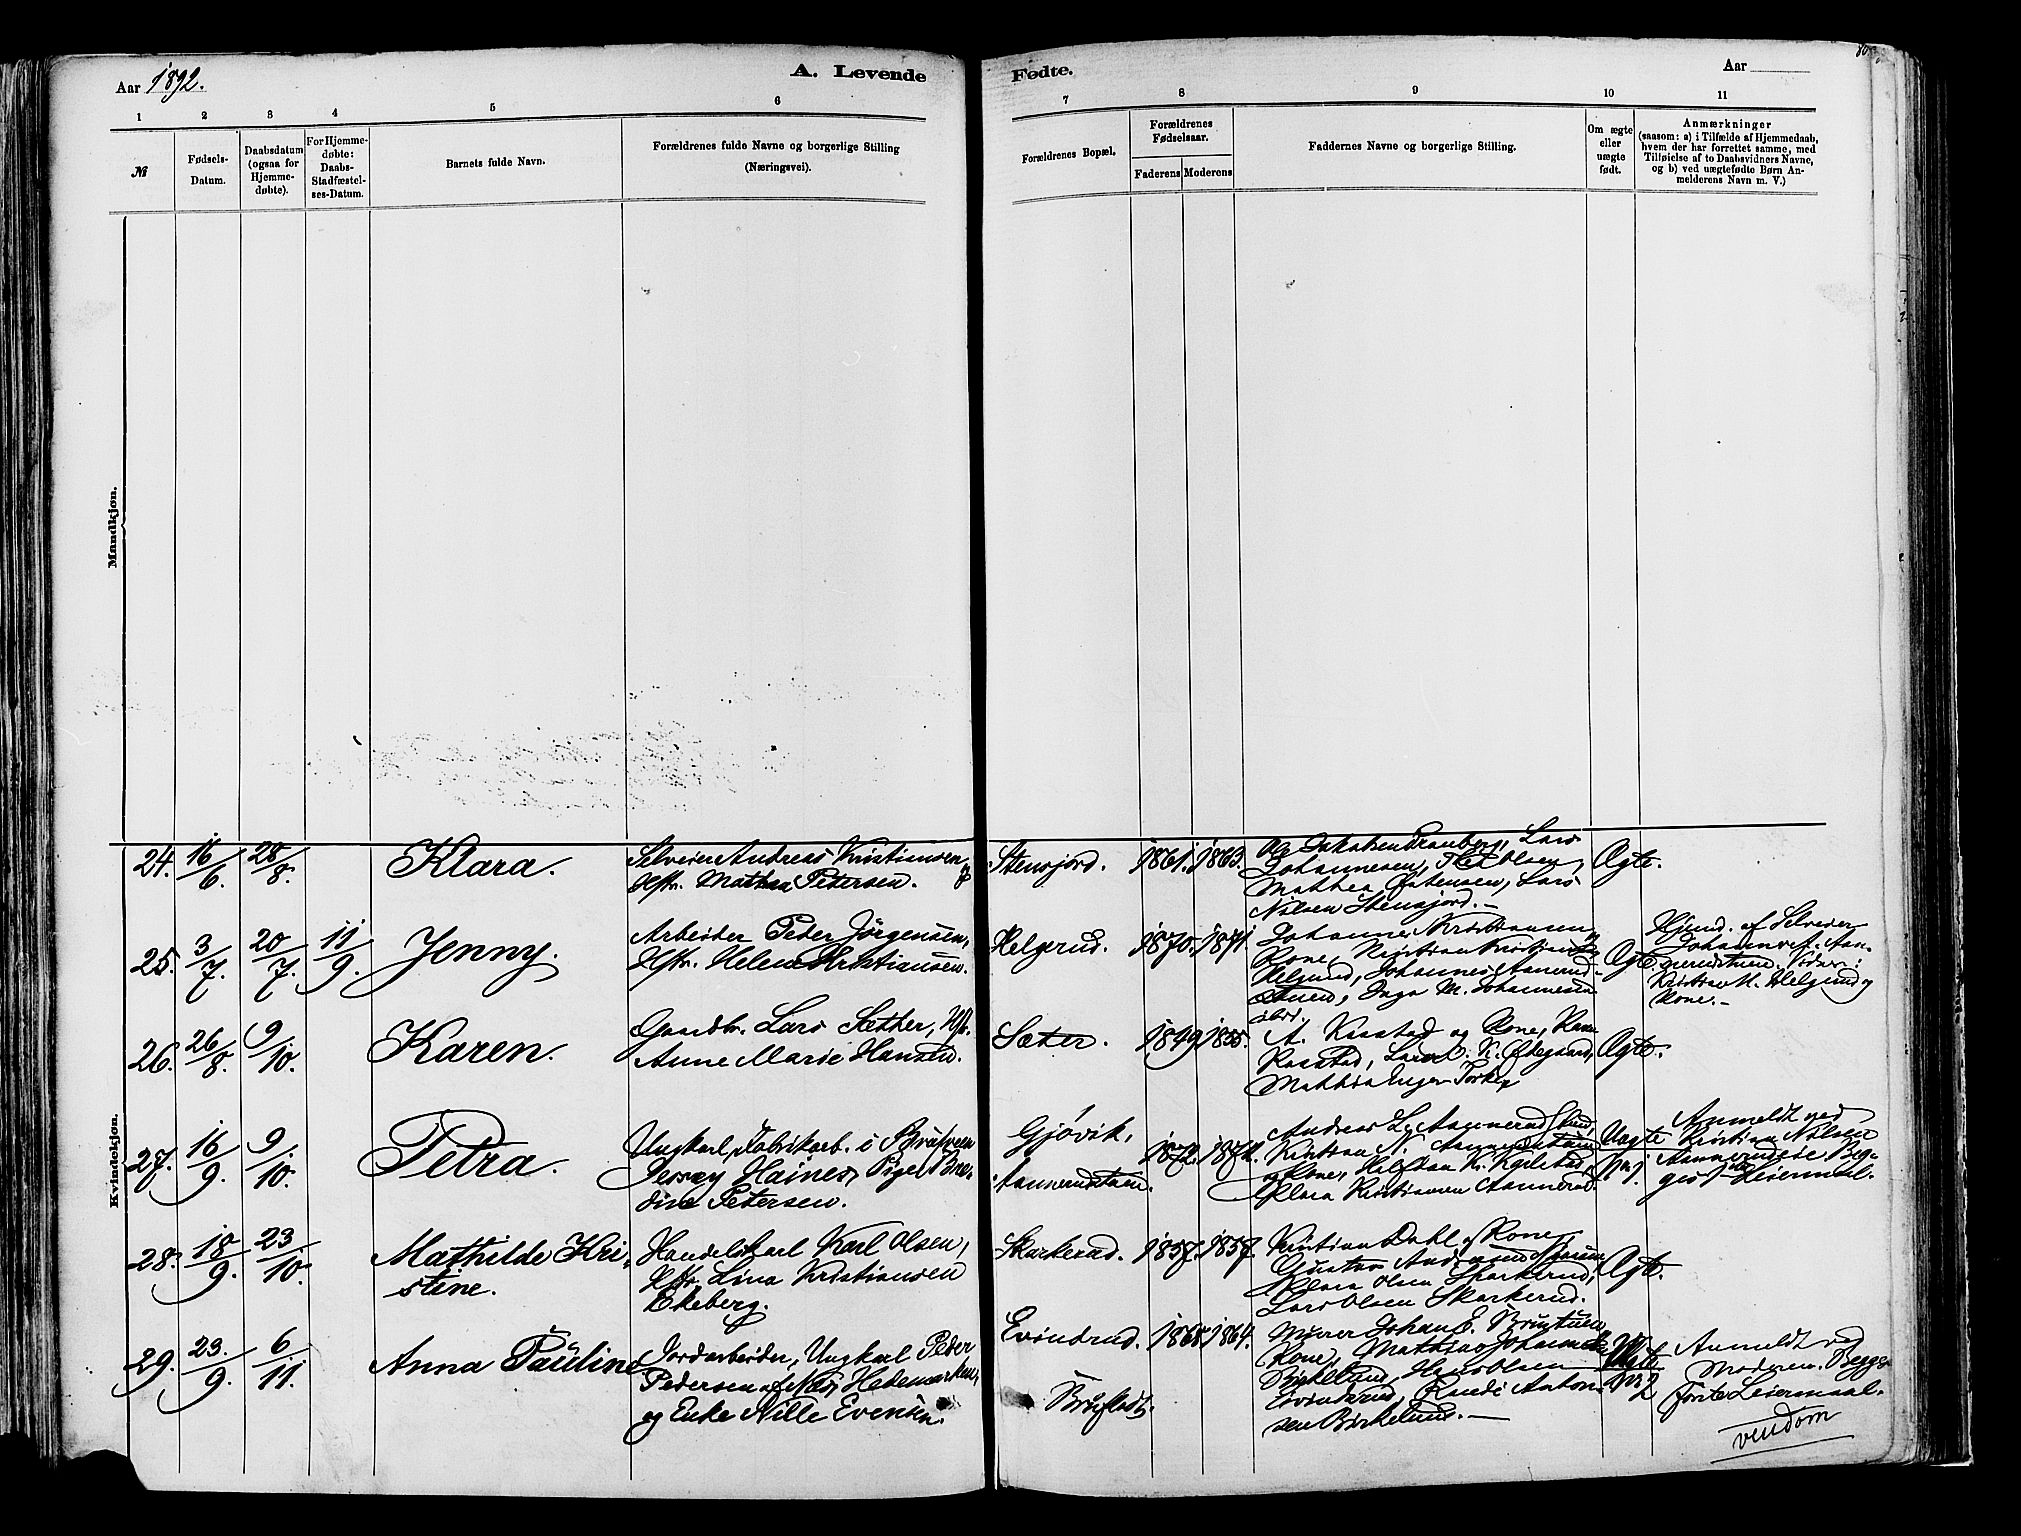 Aar 1892.
A. Levende
Fødte.
Aar
1
2
3
4
5
6
7
8
9
10
11
№
Fødsels-
Datum.
Daabsdatum
(ogsaa for
Hjemme-
døbte).
For Hjemme-
døbte:
Daabs-
Stadfæstel-
ses-Datum.
Barnets fulde Navn.
Forældrenes fulde Navne og borgerlige Stilling
(Næringsvei).
Forældrenes Bopæl.
Forældrenes
Fødselsaar.
Faderens
Moderens
Faddernes Navne og borgerlige Stilling.
Om ægte
eller
uægte
født.
Anmærkninger
(saasom: a) i Tilfælde af Hjemmedaab,
hvem der har forrettet samme, med
Tilføielse af to Daabsvidners Navne,
og b) ved uægtefødte Børn An-
melderens Navn m. V.)
Mandkjøn.
Kvindekjøn.
24. 16/6. 28/8. Klara.
Selveier Andreas Kristiansen &
Hstr. Mathea Petersen.
Stensjord. 1861. 1863.
Lars
Johannesen, Olsen,
Mathea Lars
Nilsen Stensjord.
Ægte.
25. 3/7. 20/7. 11/9. Jenny.
Arbeider Peder Jörgensen,
Hstr. Helene Kristiansen.
Helgerud. 1870. 1871.
Johannes Kristiansen
Kone, Kristian
Helgerud, Johannes Aanerud-
stuen, Inga M. Johannesen
Ægte
Hjemd. af Selveier
Johannes Aan-
nerudstuen. Vidner:
Kristian K. Helgerud og
Kone.
26. 26/8. 9/10. Karen.
Gaardbr. Lars Sæther, Hst.
Anne Marie Hansen.
Sæter. 1849 1855.
A. Kasstad og Kone, Kar
Kasstad, Ødegaard,
Mathea
Ægte.
27. 16/9. 9./10. Petra.
Ungkarl, Fabrikarb. i
Haines, Pige
dine Petersen.
Gjövik,
Aannerudstuen.
1872. 1871.
Andreas L. Aannerud
Kristian N. Aannerudstuen
og Kone,
Klara Kristiansen Aannerud.
Uægte
№ 1
Anmeldt ved
Kristian Nilsen
Aannerudeie. Beg-
ges 1ste Leiermaal.
28. 18/9. 23/10. Mathilde Kri-
stine.
Handelskarl Karl Olsen,
Hstr. Lina Kristiansen
Ekeberg.
Skarkerud. 1857. 1857.
Kristian Dahl og Kone,
Gustav
Klara Olsen Skarkerud,
Lars Olsen Skarkerud.
Ægt.
29. 23./9. 6/11. Anna Pauline
Jordarbeider, Ungkarl Peder
Pedersen af Næs, Hedemarken,
og Enke Nille Evensen.
Evindrud.
1865 1864.
Murer Johan E.
Kone, Mathias
Birkelund, Hans Olsen
Evindrud, Randi Anton-
sen Birkelund.
Uægte
№ 2
Anmeldt ved
Moderen. Begges
förste Leiermaal.
vendom